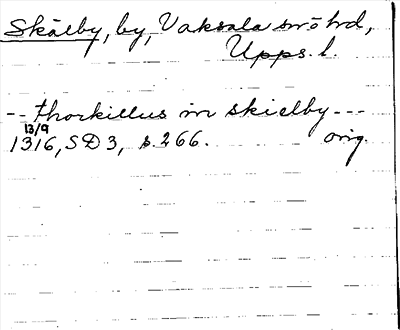 Skälby, by, Vaksala sn o hd,
Upps. l.
-- thorkillus in skielby ---
13/9
1316, SD 3, s. 266. orig.